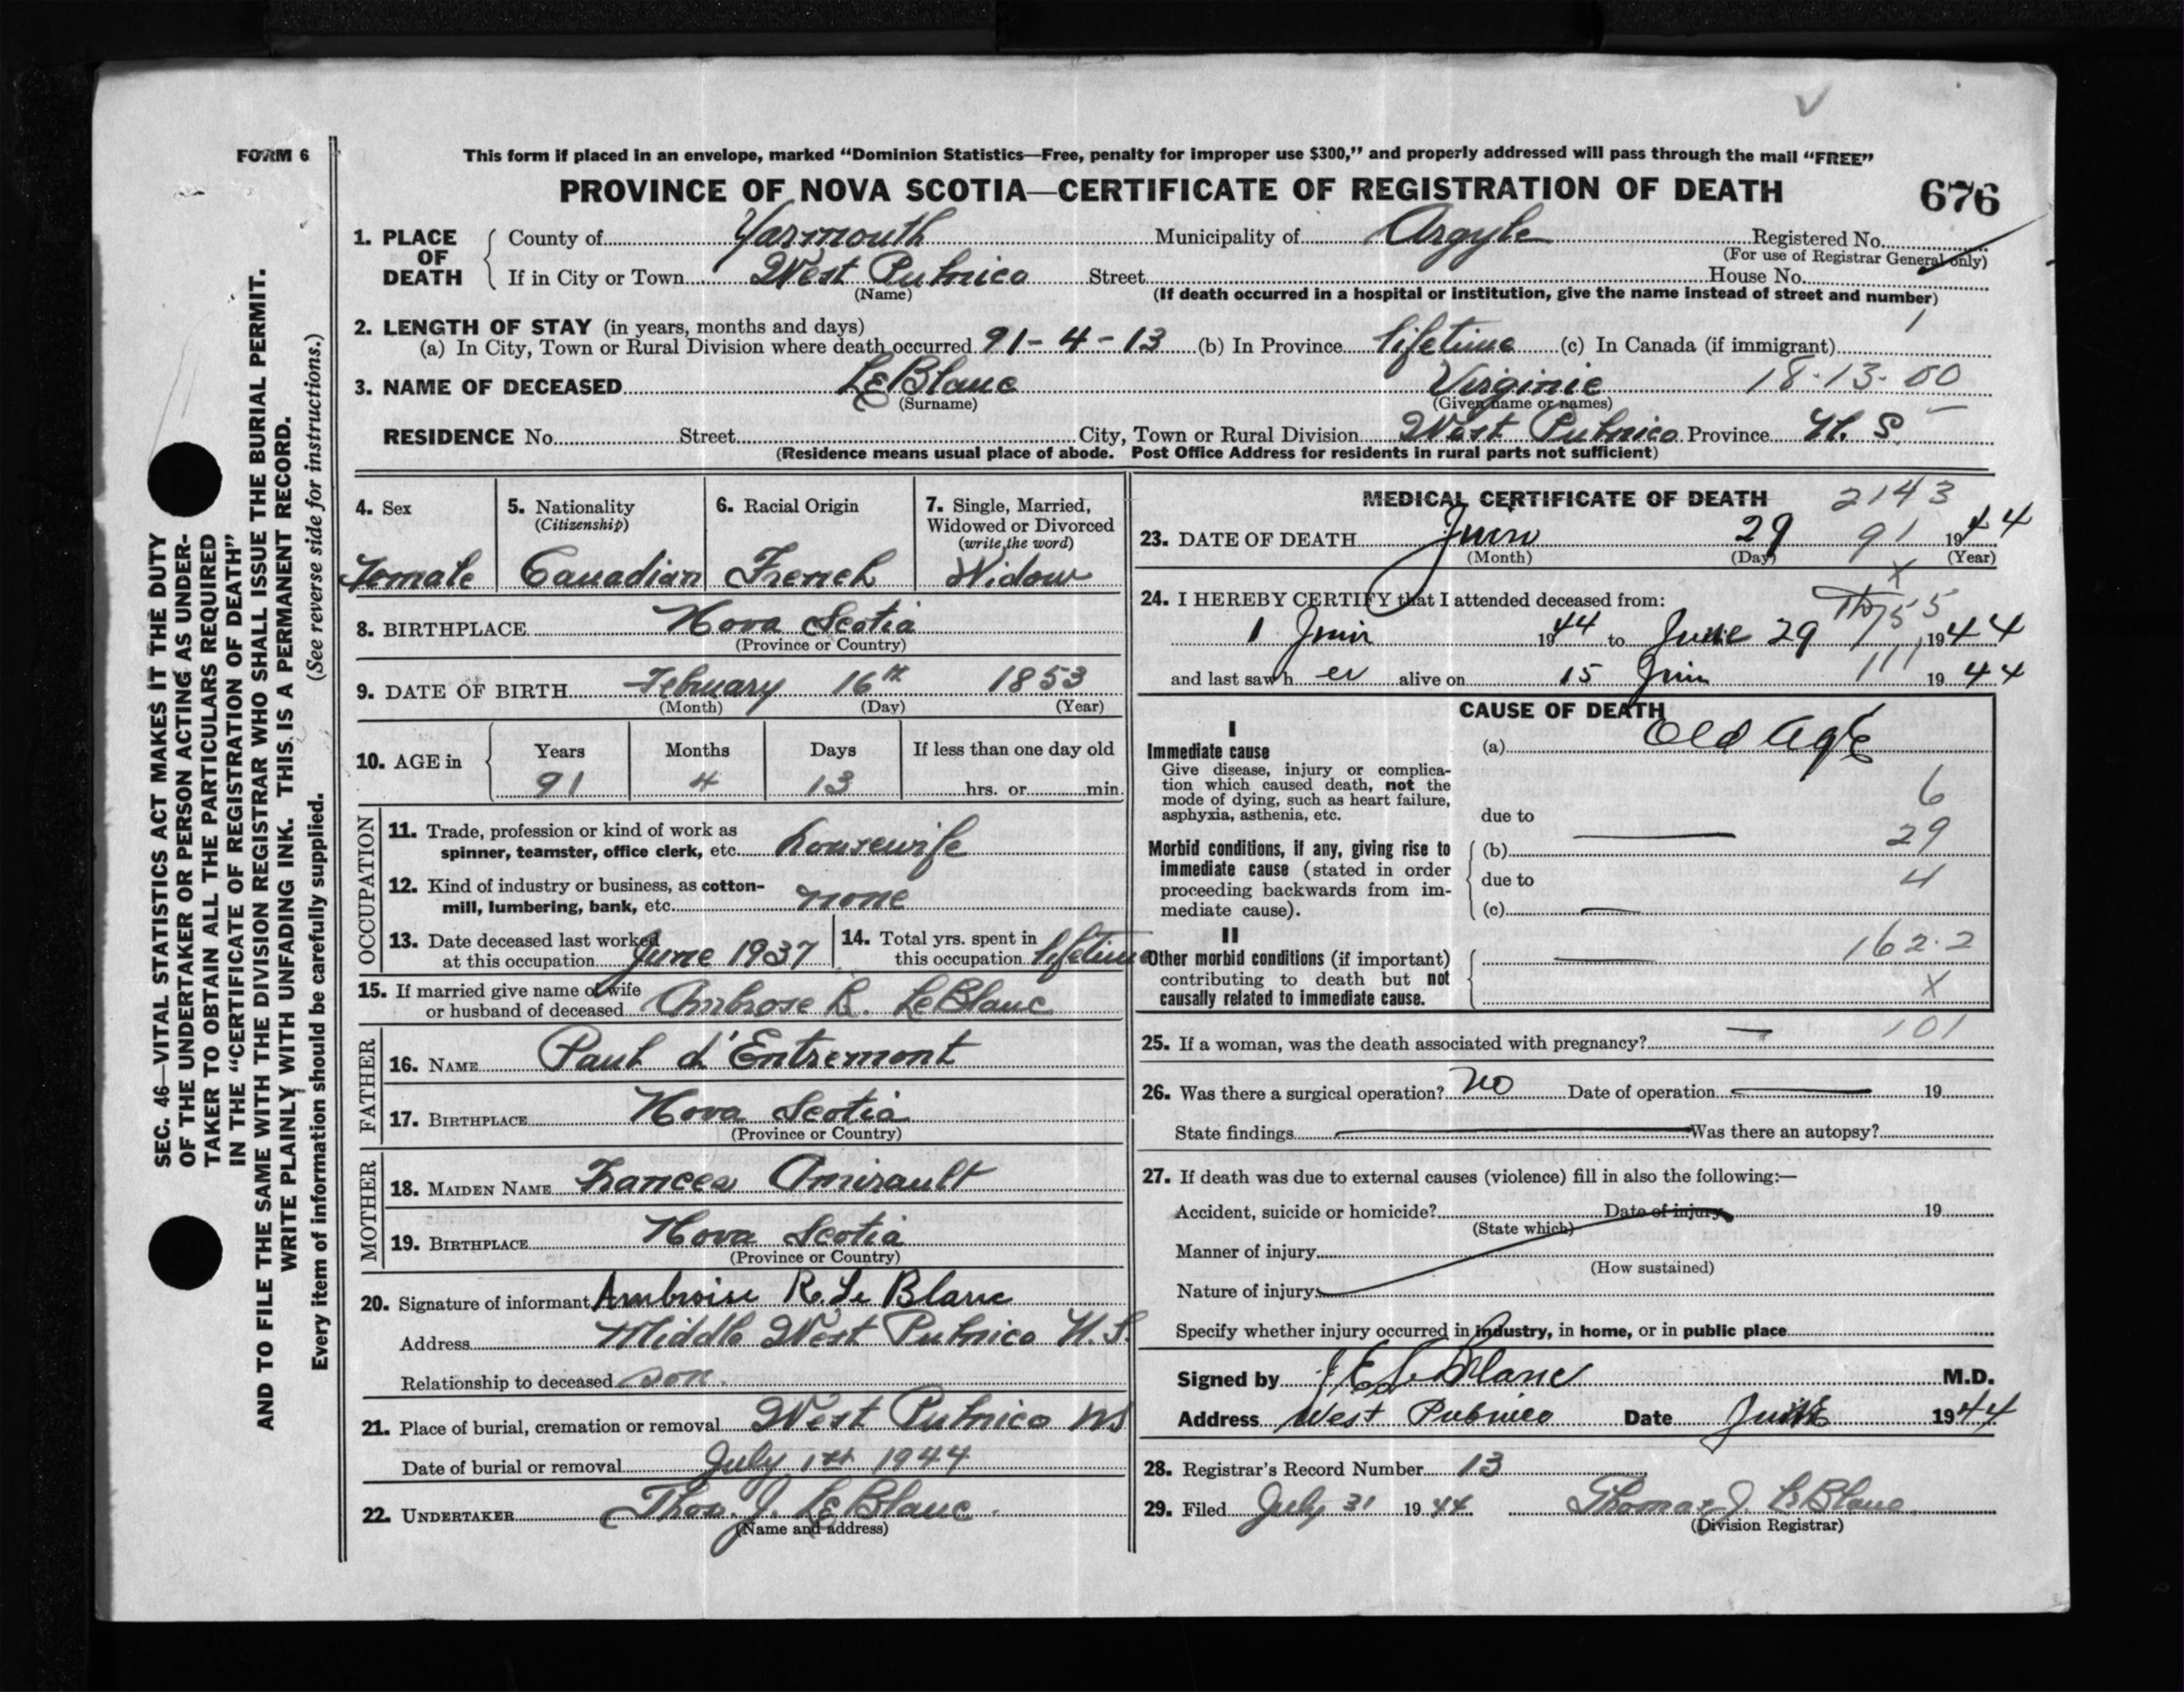 FORM 6
This form if placed in an envelope, marked “Dominion Statistics—Free, penalty for improper use $300,” and properly addressed will pass through the mail “FREE”
PROVINCE OF NOVA SCOTIA—CERTIFICATE OF REGISTRATION OF DEATH 676
1. PLACE OF DEATH County of Yarmouth Municipality of Argyle Registered No.
(For use of Registrar General only)
If in City or Town West Pubnico Street House No.
(Name) (If death occurred in a hospital or institution, give the name instead of street and number)
2. LENGTH OF STAY (in years, months and days)
(a) In City, Town or Rural Division where death occurred 91-4-13 (b) In Province lifetime (c) In Canada (if immigrant)
3. NAME OF DECEASED LeBlanc Virginie 18-13-00
(Surname) (Given name or names)
RESIDENCE No. Street City, Town or Rural Division West Pubnico Province N. S.
(Residence means usual place of abode. Post Office Address for residents in rural parts not sufficient)
4. Sex Female
5. Nationality (Citizenship) Canadian
6. Racial Origin French
7. Single, Married, Widowed or Divorced (write the word) Widow
8. BIRTHPLACE Nova Scotia
(Province or Country)
9. DATE OF BIRTH February 16th 1853
(Month) (Day) (Year)
10. AGE in Years Months Days If less than one day old
91 4 13 hrs. or min.
OCCUPATION
11. Trade, profession or kind of work as
spinner, teamster, office clerk, etc. housewife
12. Kind of industry or business, as cotton-
mill, lumbering, bank, etc. none
13. Date deceased last worked
at this occupation June 1937
14. Total yrs. spent in
this occupation lifetime
15. If married give name of wife
or husband of deceased Ambrose R. LeBlanc
FATHER
16. NAME Paul d'Entremont
17. BIRTHPLACE Nova Scotia
(Province or Country)
MOTHER
18. MAIDEN NAME Frances Amirault
19. BIRTHPLACE Nova Scotia
(Province or Country)
20. Signature of informant Ambroise R. Le Blanc
Address Middle West Pubnico N.S.
Relationship to deceased son
21. Place of burial, cremation or removal West Pubnico NS
Date of burial or removal July 1st 1944
22. UNDERTAKER Thos. J. LeBlanc
(Name and address)
MEDICAL CERTIFICATE OF DEATH 2143
23. DATE OF DEATH Juin 29 91 1944
(Month) (Day) (Year)
24. I HEREBY CERTIFY that I attended deceased from:
1 Juin 1944 to June 29 1944
and last saw h er alive on 15 Juin 1944
CAUSE OF DEATH
I
Immediate cause
Give disease, injury or complica-
tion which caused death, not the
mode of dying, such as heart failure,
asphyxia, asthenia, etc.
(a) Old Age
6
due to
Morbid conditions, if any, giving rise to
immediate cause (stated in order
proceeding backwards from im-
mediate cause).
(b) 29
due to 4
(c)
II
Other morbid conditions (if important)
contributing to death but not
causally related to immediate cause.
162.2
X
101
25. If a woman, was the death associated with pregnancy?
26. Was there a surgical operation? No Date of operation 19
State findings Was there an autopsy?
27. If death was due to external causes (violence) fill in also the following:—
Accident, suicide or homicide? Date of injury 19
(State which)
Manner of injury
(How sustained)
Nature of injury
Specify whether injury occurred in industry, in home, or in public place
Signed by J E LeBlanc M.D.
Address West Pubnico Date June 1944
28. Registrar's Record Number 13
29. Filed July 31 1944 Thomas J. LeBlanc
(Division Registrar)
SEC. 46—VITAL STATISTICS ACT MAKES IT THE DUTY
OF THE UNDERTAKER OR PERSON ACTING AS UNDER-
TAKER TO OBTAIN ALL THE PARTICULARS REQUIRED
IN THE “CERTIFICATE OF REGISTRATION OF DEATH”
AND TO FILE THE SAME WITH THE DIVISION REGISTRAR WHO SHALL ISSUE THE BURIAL PERMIT.
WRITE PLAINLY WITH UNFADING INK. THIS IS A PERMANENT RECORD.
Every item of information should be carefully supplied. (See reverse side for instructions.)